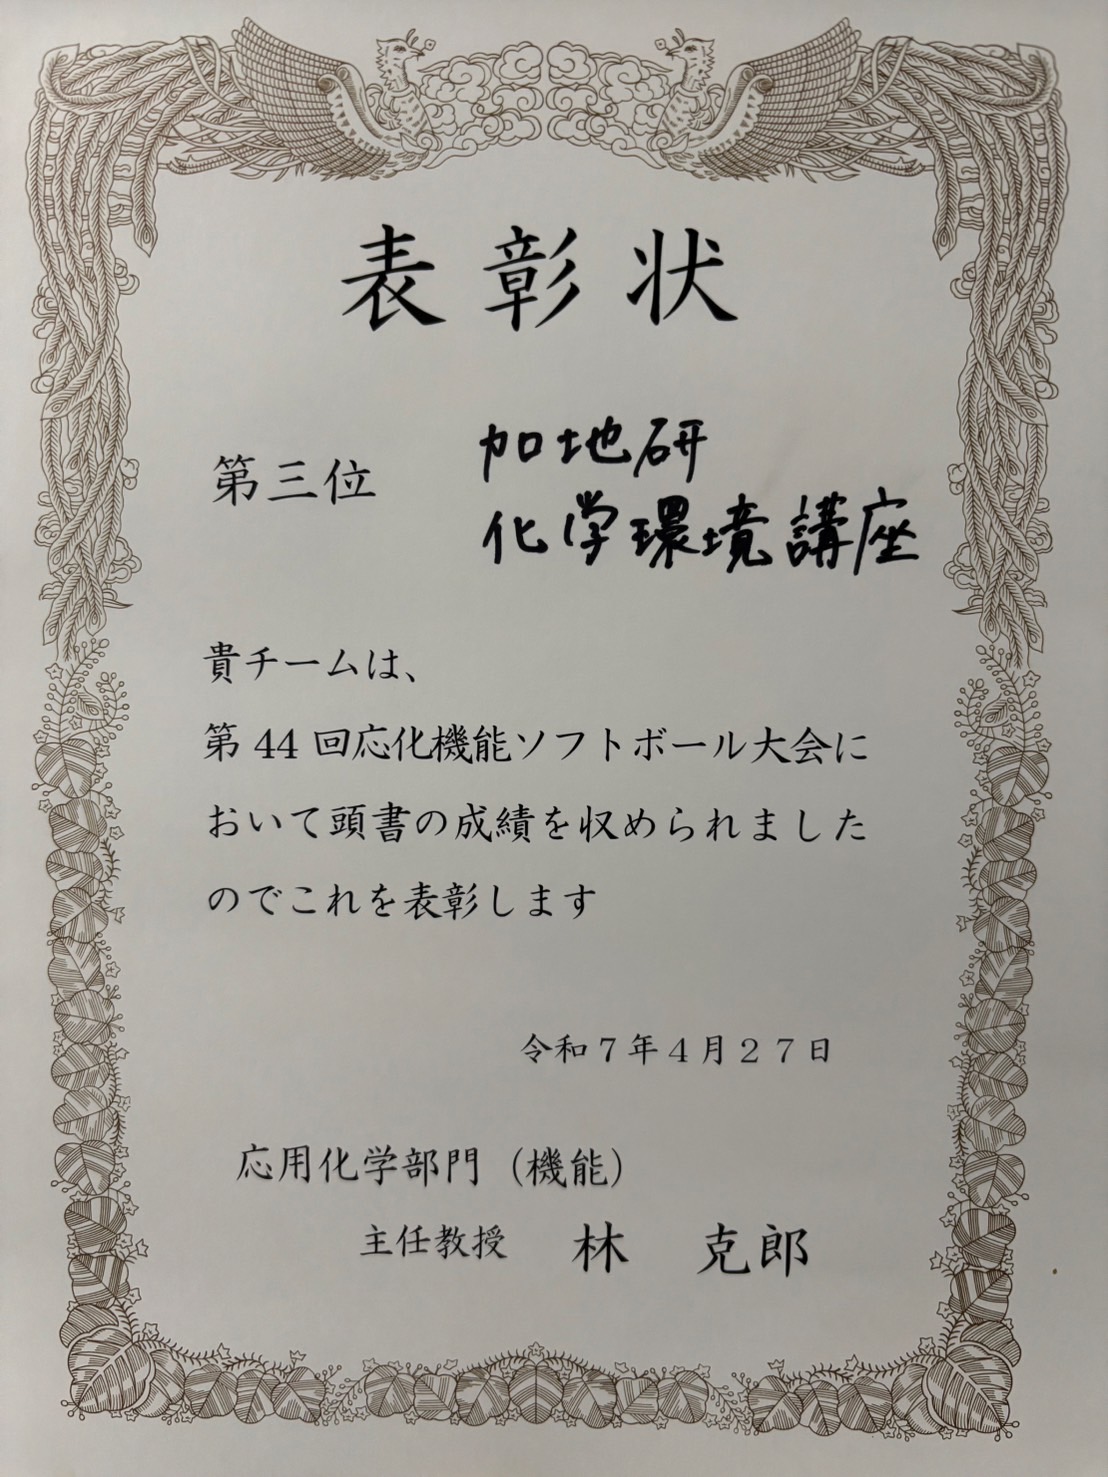 表彰状
第三位
加地研
化学環境講座
貴チームは、
第44回応化機能ソフトボール大会に
おいて頭書の成績を収められました
のでこれを表彰します
令和７年４月２７日
応用化学部門（機能）
主任教授　林　克郎